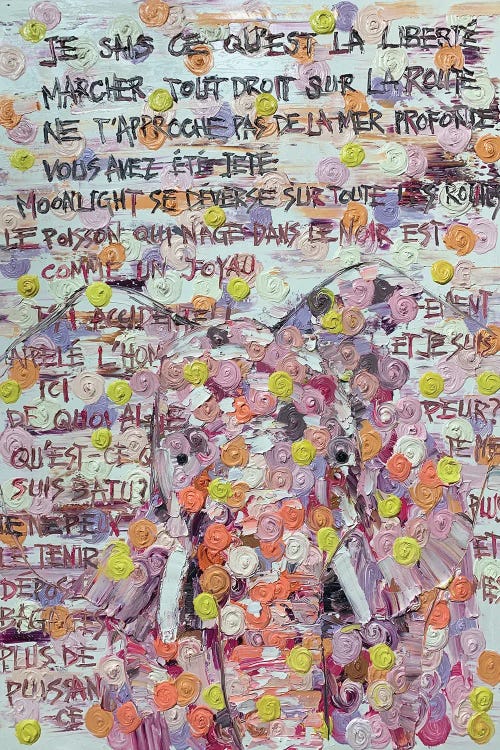 JE SAIS CE QU'EST LA LIBERTÉ
MARCHER TOUT DROIT SUR LA ROUTE
NE T'APPROCHE PAS DE LA MER PROFONDE
VOUS AVEZ ÉTÉ JETÉ
MOONLIGHT SE DEVERSE SUR TOUTE LES ROUTES
LE POISSON QUI NAGE DANS LE NOIR EST
COMME UN JOYAU
J'AI ACCIDENTELL EMENT
APPELÉ L'HOM ET JE SUIS
ICI
DE QUOI AI-JE PEUR?
QU'EST-CE Q JE ME
SUIS BATU? PLUS
JE NE PEUX ET
LE TENIR
DEPOSE
BAGAGES
PLUS DE
PUISSAN
CE